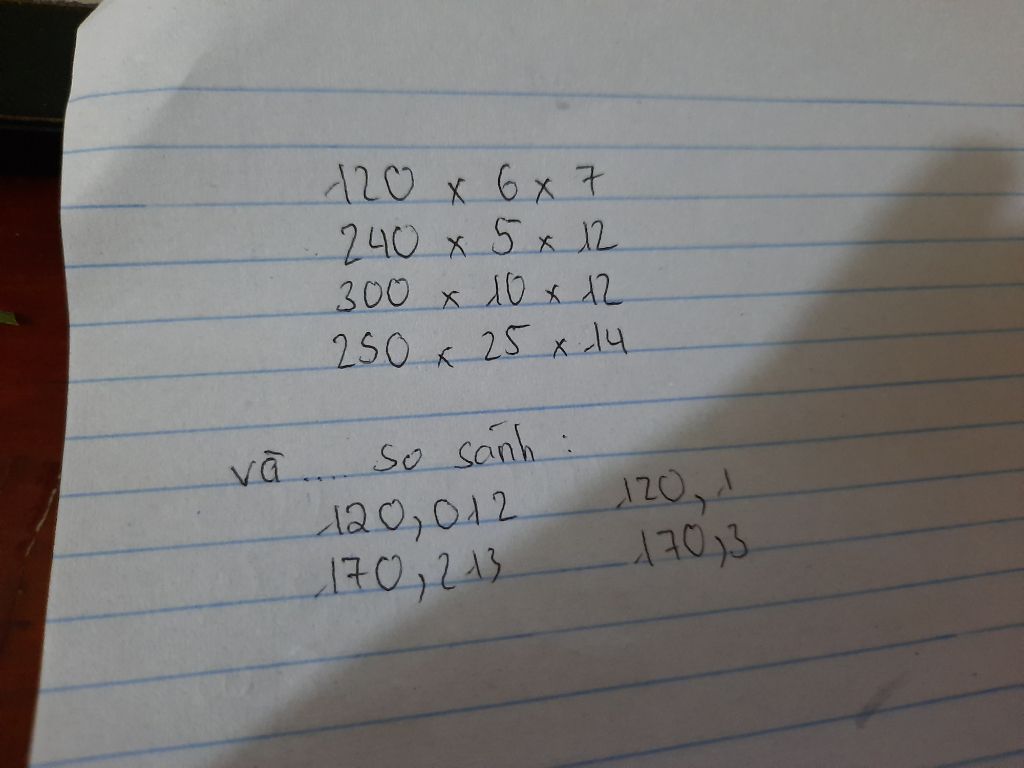 120 x 6 x 7
240 x 5 x 12
300 x 10 x 12
250 x 25 x 14
và .... so sánh :
120,012 120,1
170,213 170,3